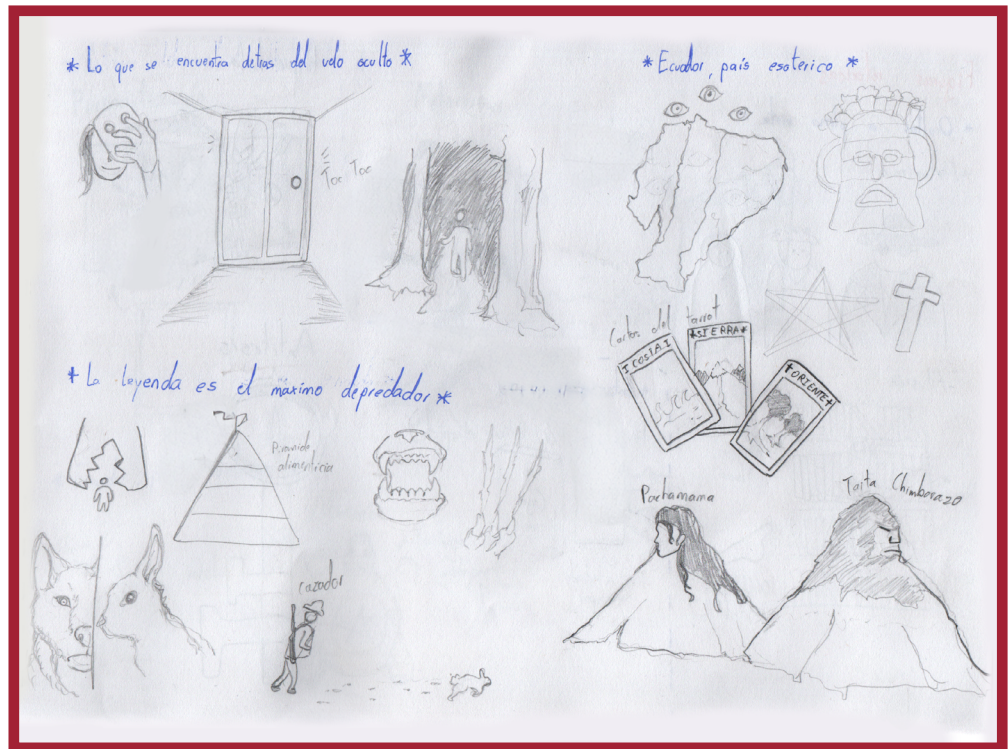 * Lo que se encuentra detras del velo oculto *
Toc Toc
* Ecuador, país esoterico *
Cartas del tarrot
COSTA
*SIERRA*
+ORIENTE+
* La leyenda es el maximo depredador *
Piramide
alimenticia
cazador
Pachamama
Taita Chimborazo